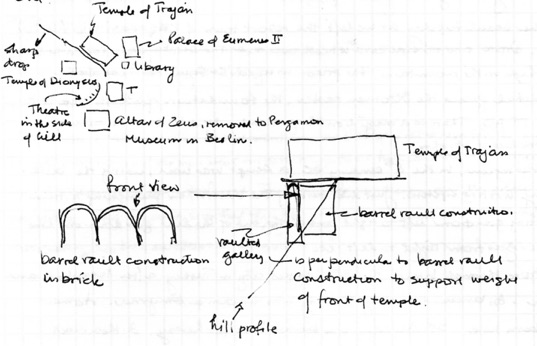 Temple of Trajan
Palace of Eumenes II
sharp
drop
Library
Temple of Dionysus
T
Theatre
in the side
of hill
Altar of Zeus, removed to Pergamon
Museum in Berlin.
Temple of Trajan
front view
barrel vault constructio.
barrel vault construction
in brick
vaulted
gallery
is perpendicula to barrel vault
construction to support weight
of front of temple.
hill profile